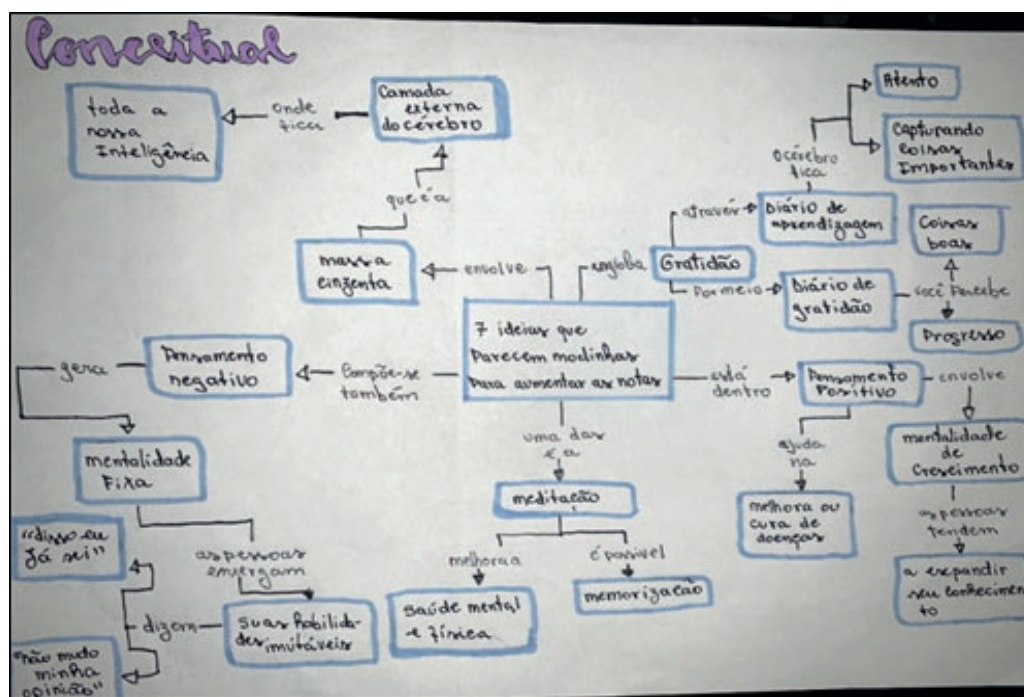 Conceitual
toda a
nossa
Inteligência
onde
fica
Camada
externa
do cérebro
que é a
massa
cinzenta
envolve
7 ideias que
Parecem modinhas
Para aumentar as notas
engloba
Gratidão
através
Diário de
aprendizagem
O cérebro
fica
Atento
Capturando
coisas
Importantes
Por meio
Diário de
gratidão
você Percebe
Coisas
boas
Progresso
está
dentro
Pensamento
Positivo
envolve
mentalidade
de
Crescimento
as pessoas
tendem
a expandir
seu conhecimen
to
ajuda
na
melhora ou
cura de
doenças
uma das
é a
meditação
melhora a
Saúde mental
e física
é possível
memorização
Compõe-se
também
Pensamento
negativo
gera
mentalidade
Fixa
as pessoas
enxergam
suas habilida-
des imutáveis
dizem
"disso eu
Já sei"
"não mudo
minha
opinião"